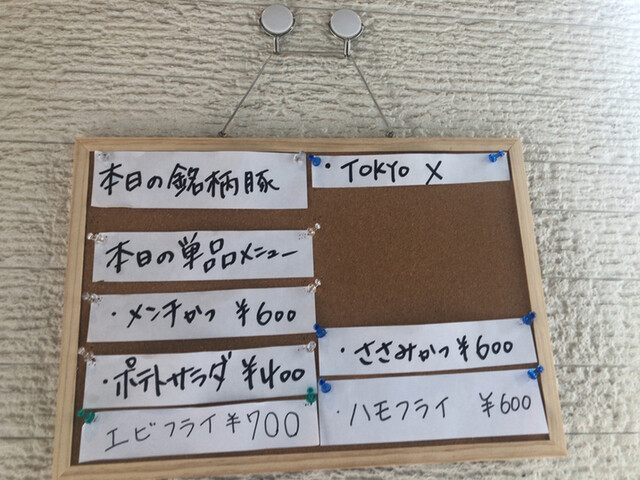 本日の銘柄豚
・TOKYO X
本日の単品メニュー
・メンチかつ ¥600
・ポテトサラダ ¥400
エビフライ ¥700
・ささみかつ ¥600
・ハモフライ ¥600